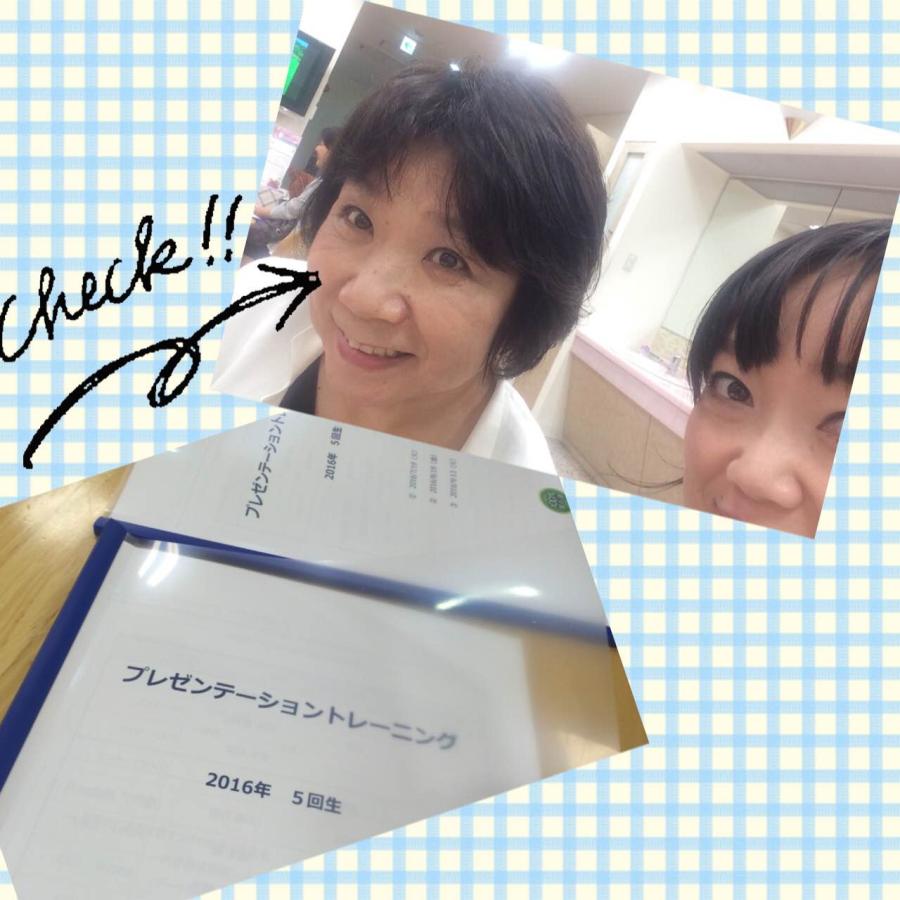 Check!!
プレゼンテーショントレ
2016年 5回生
① 2016/7/19 (火)
プレゼンテーショントレーニング
2016年 5回生